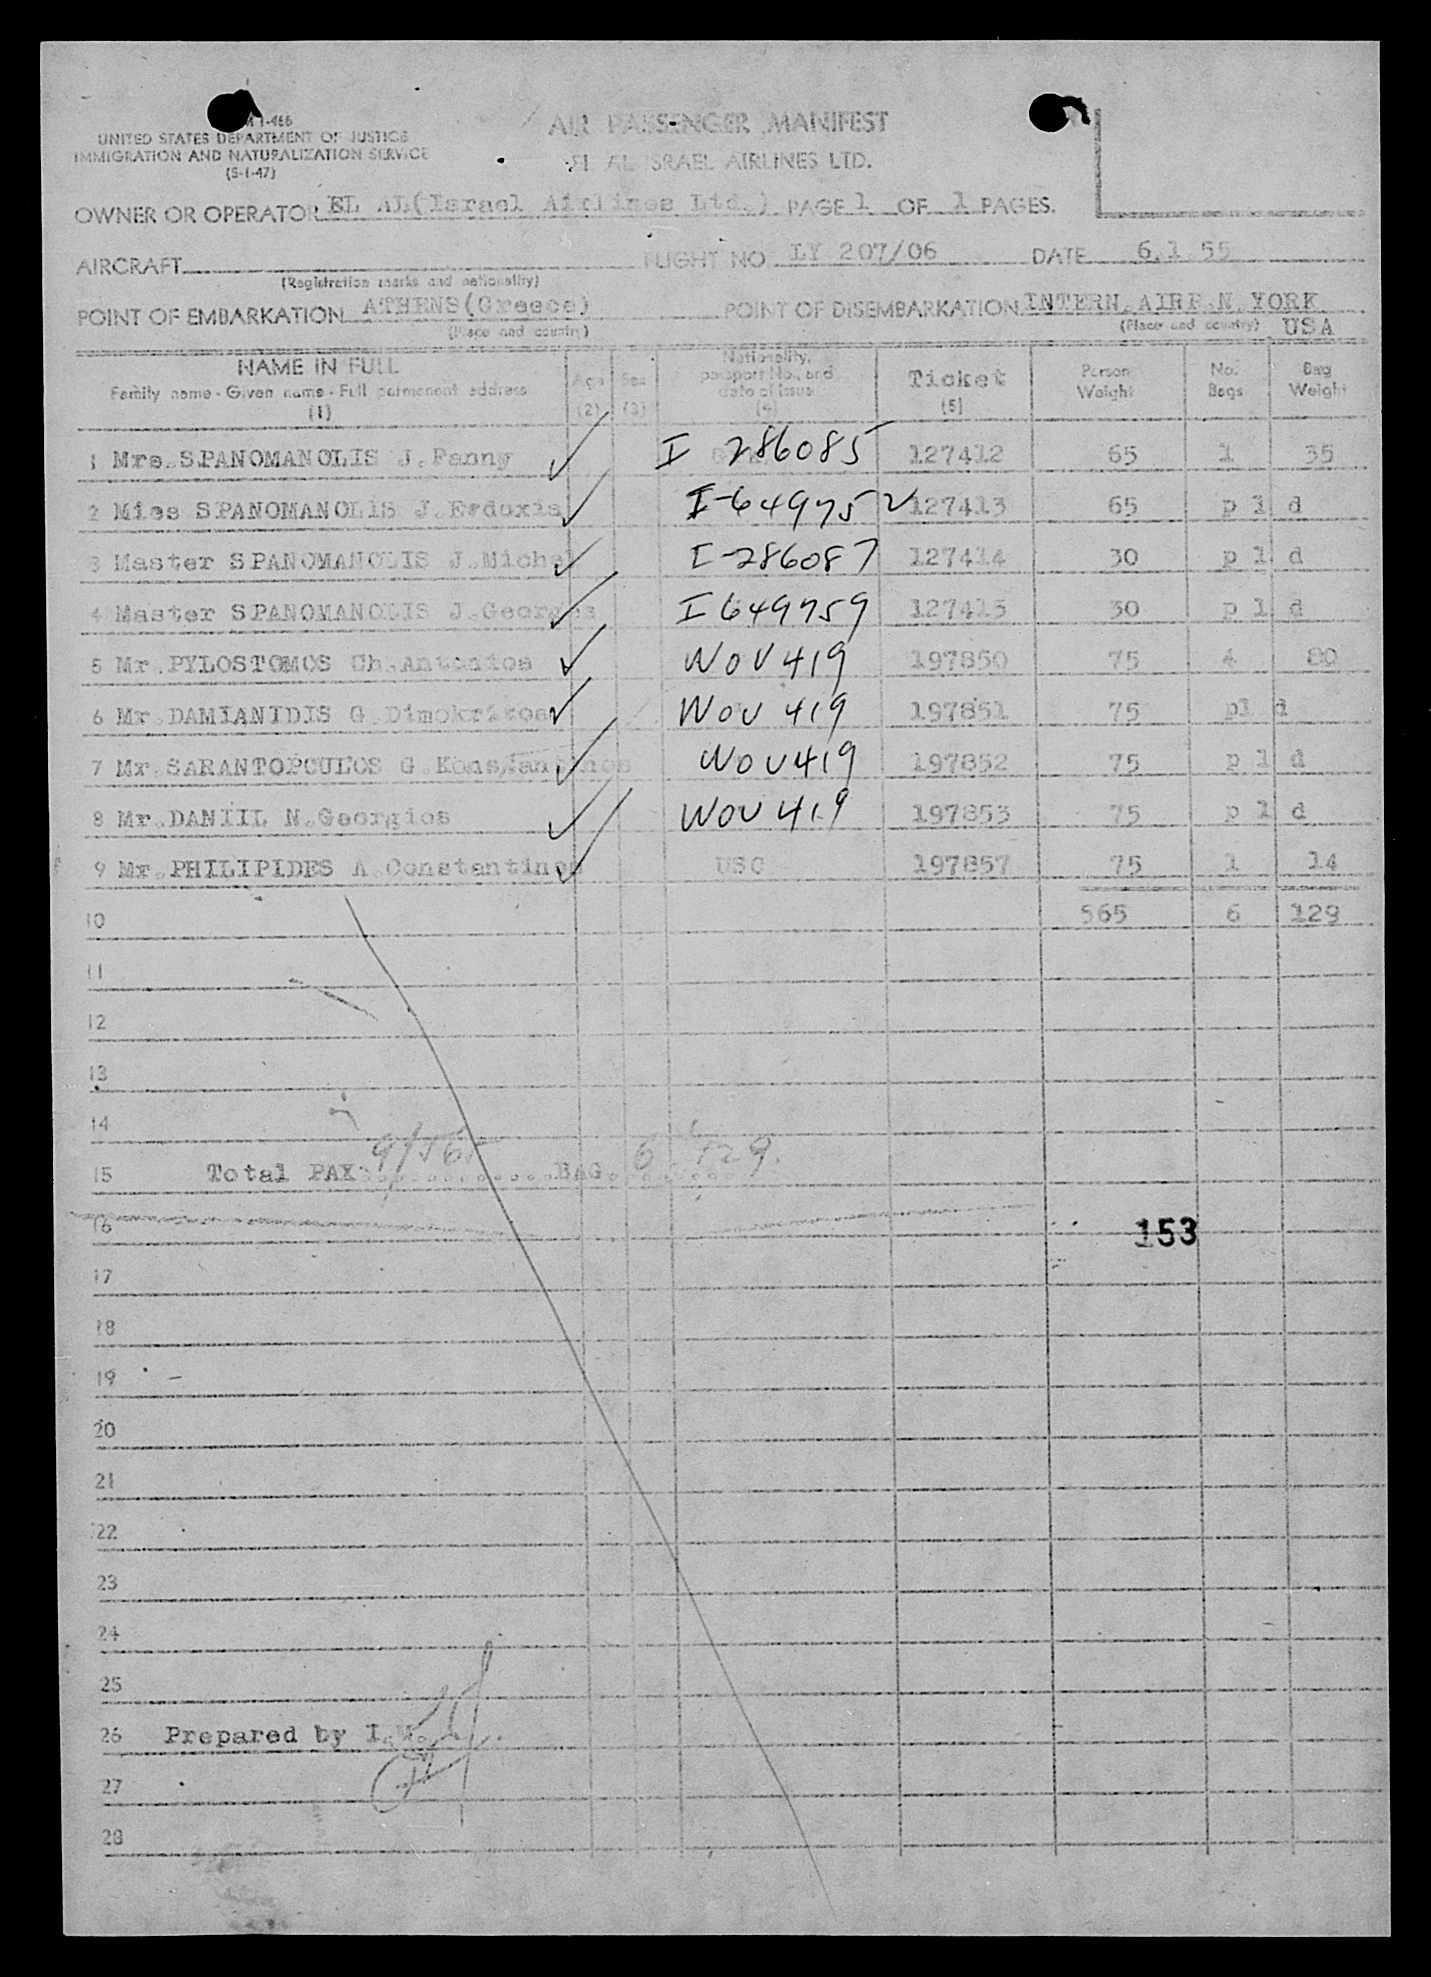 I-466
UNITED STATES DEPARTMENT OF JUSTICE
IMMIGRATION AND NATURALIZATION SERVICE
(5-1-47)
AIR PASSENGER MANIFEST
EL AL ISRAEL AIRLINES LTD.
OWNER OR OPERATOR EL AL(Israel Airlines Ltd.) PAGE 1 OF 1 PAGES.
AIRCRAFT FLIGHT NO LY 207/06 DATE 6.1.55
(Registration marks and nationality)
POINT OF EMBARKATION ATHENS(Greece) POINT OF DISEMBARKATION INTERN.AIRP.N.YORK
(Place and country) (Place and country) USA
NAME IN FULL
Family name - Given name - Full permanent address
(1)
Age
(2)
Sex
(3)
Nationality,
passport No., and
date of issue
(4)
Ticket
(5)
Person
Weight
No.
Bags
Bag
Weight
1 Mrs.SPANOMANOLIS J.Fanny I 286085 127412 65 1 35
2 Miss SPANOMANOLIS J.Erdoxia I-649752 127413 65 p l d
3 Master SPANOMANOLIS J.Michel I-286087 127414 30 p l d
4 Master SPANOMANOLIS J.Georges I 649759 127415 30 p l d
5 Mr.PYLOSTOMOS Ch.Antonios WOV 419 197850 75 4 80
6 Mr.DAMIANIDIS G.Dimokritos WOV 419 197851 75 pl d
7 Mr.SARANTOPOULOS G.Konstantinos WOV 419 197852 75 p l d
8 Mr.DANIIL N.Georgios WOV 419 197853 75 p l d
9 Mr.PHILIPIDES A.Constantinos USC 197857 75 1 14
10 565 6 129
11
12
13
14
15 Total PAX: 9/565 BAG 6 129.
16
153
17
18
19
20
21
22
23
24
25
26 Prepared by I.
27
28